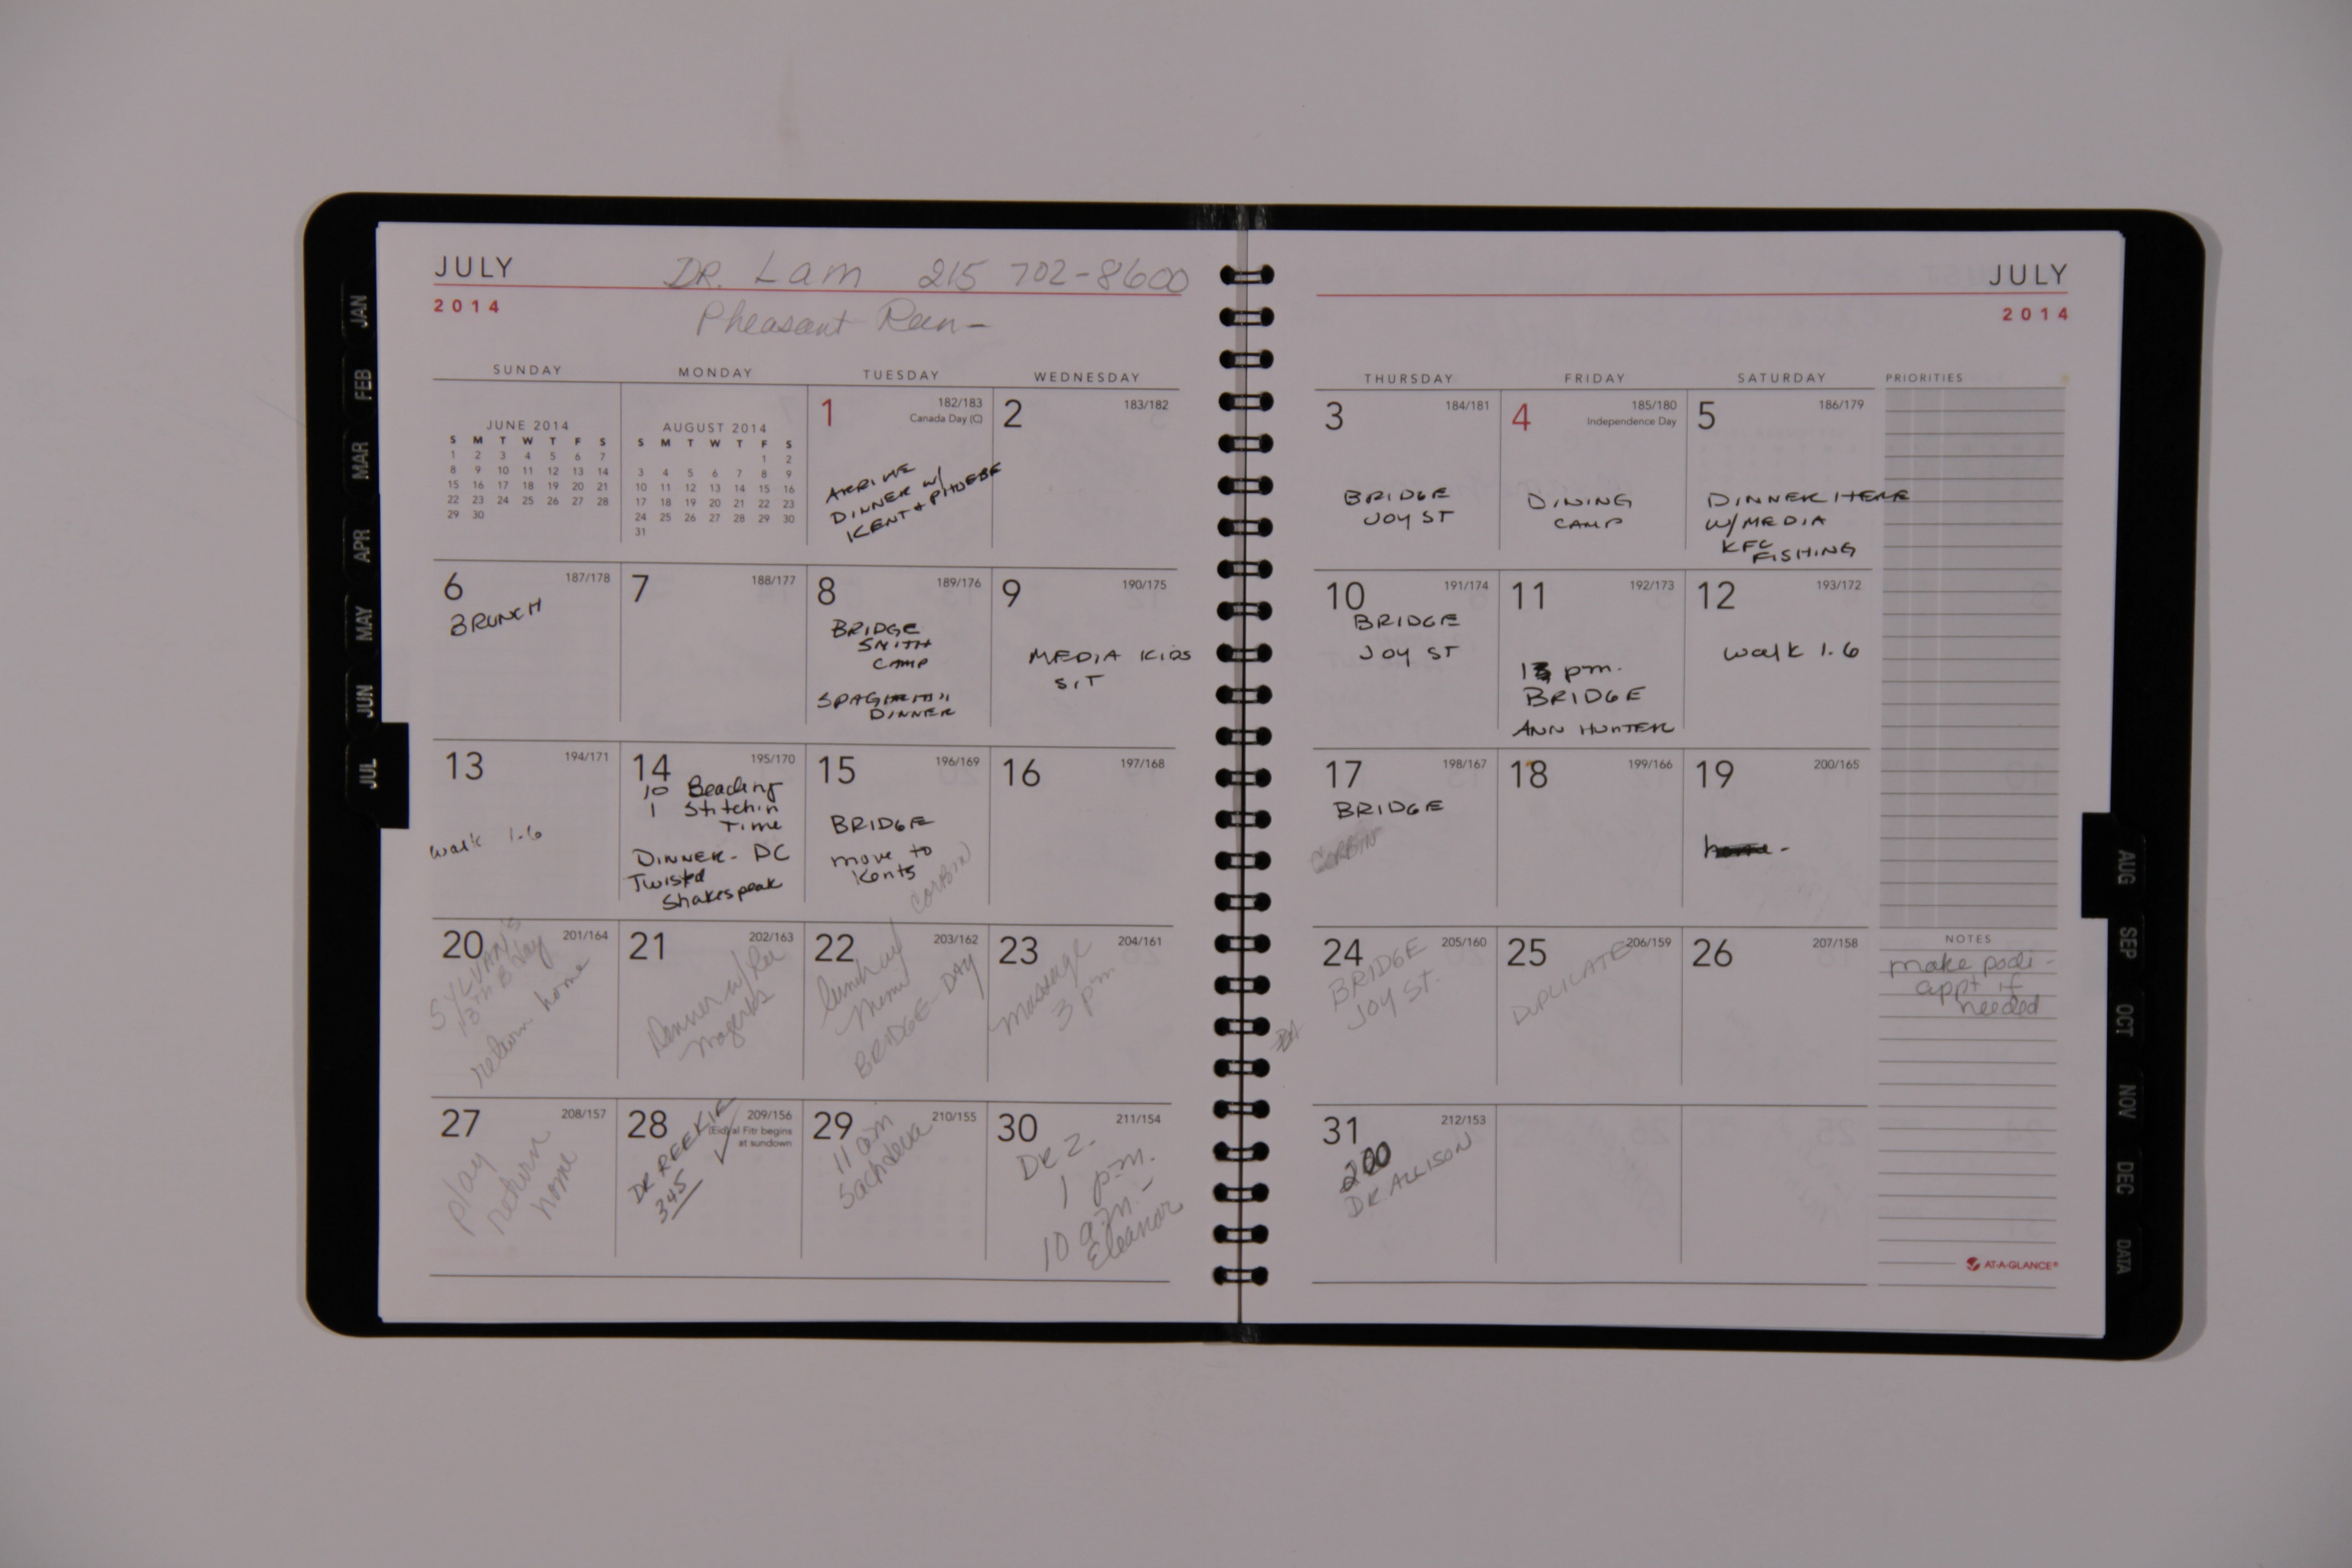 JULY
2014
DR. Lam 215 702-8600
Pheasant Run-
SUNDAY MONDAY TUESDAY WEDNESDAY
JUNE 2014
S M T W T F S
1 2 3 4 5 6 7
8 9 10 11 12 13 14
15 16 17 18 19 20 21
22 23 24 25 26 27 28
29 30
AUGUST 2014
S M T W T F S
1 2
3 4 5 6 7 8 9
10 11 12 13 14 15 16
17 18 19 20 21 22 23
24 25 26 27 28 29 30
31
1 182/183
Canada Day (C)
ARRIVE
DINNER W/
KENT + PHOEBE
2 183/182
6 187/178
BRUNCH
7 188/177
8 189/176
BRIDGE
SMITH
CAMP
SPAGHETTI
DINNER
9 190/175
MEDIA KIDS
SIT
13 194/171
walk 1.6
14 195/170
10 Beading
1 Stitchin
Time
DINNER - DC
Twisted
Shakespeak
15 196/169
BRIDGE
move to
Kents
CORBIN
16 197/168
20 201/164
SYLVAN'S
B'day
return home
21 202/163
Dinner w/
22 203/162
lunch w/
Mimi
BRIDGE-DAY
23 204/161
Massage
3 pm
27 208/157
play
return
home
28 209/156
(Eid) al Fitr begins
at sundown
DR REEKIE
345
29 210/155
11 am
Sachdeva
30 211/154
Dr Z.
1 p.m.
10 a.m. -
Eleanor
JULY
2014
THURSDAY FRIDAY SATURDAY PRIORITIES
3 184/181
BRIDGE
JOY ST
4 185/180
Independence Day
DINING
CAMP
5 186/179
DINNER HERE
W/MEDIA
KFC
FISHING
10 191/174
BRIDGE
JOY ST
11 192/173
1 pm.
BRIDGE
ANN HUNTER
12 193/172
walk 1.6
17 198/167
BRIDGE
CORBIN
18 199/166
19 200/165
home -
24 205/160
BRIDGE
JOY ST.
25 206/159
DUPLICATE
26 207/158
31 212/153
200
DR. ALLISON
NOTES
make podi-
appt if
needed
AT-A-GLANCE®
JAN
FEB
MAR
APR
MAY
JUN
JUL
AUG
SEP
OCT
NOV
DEC
DATA